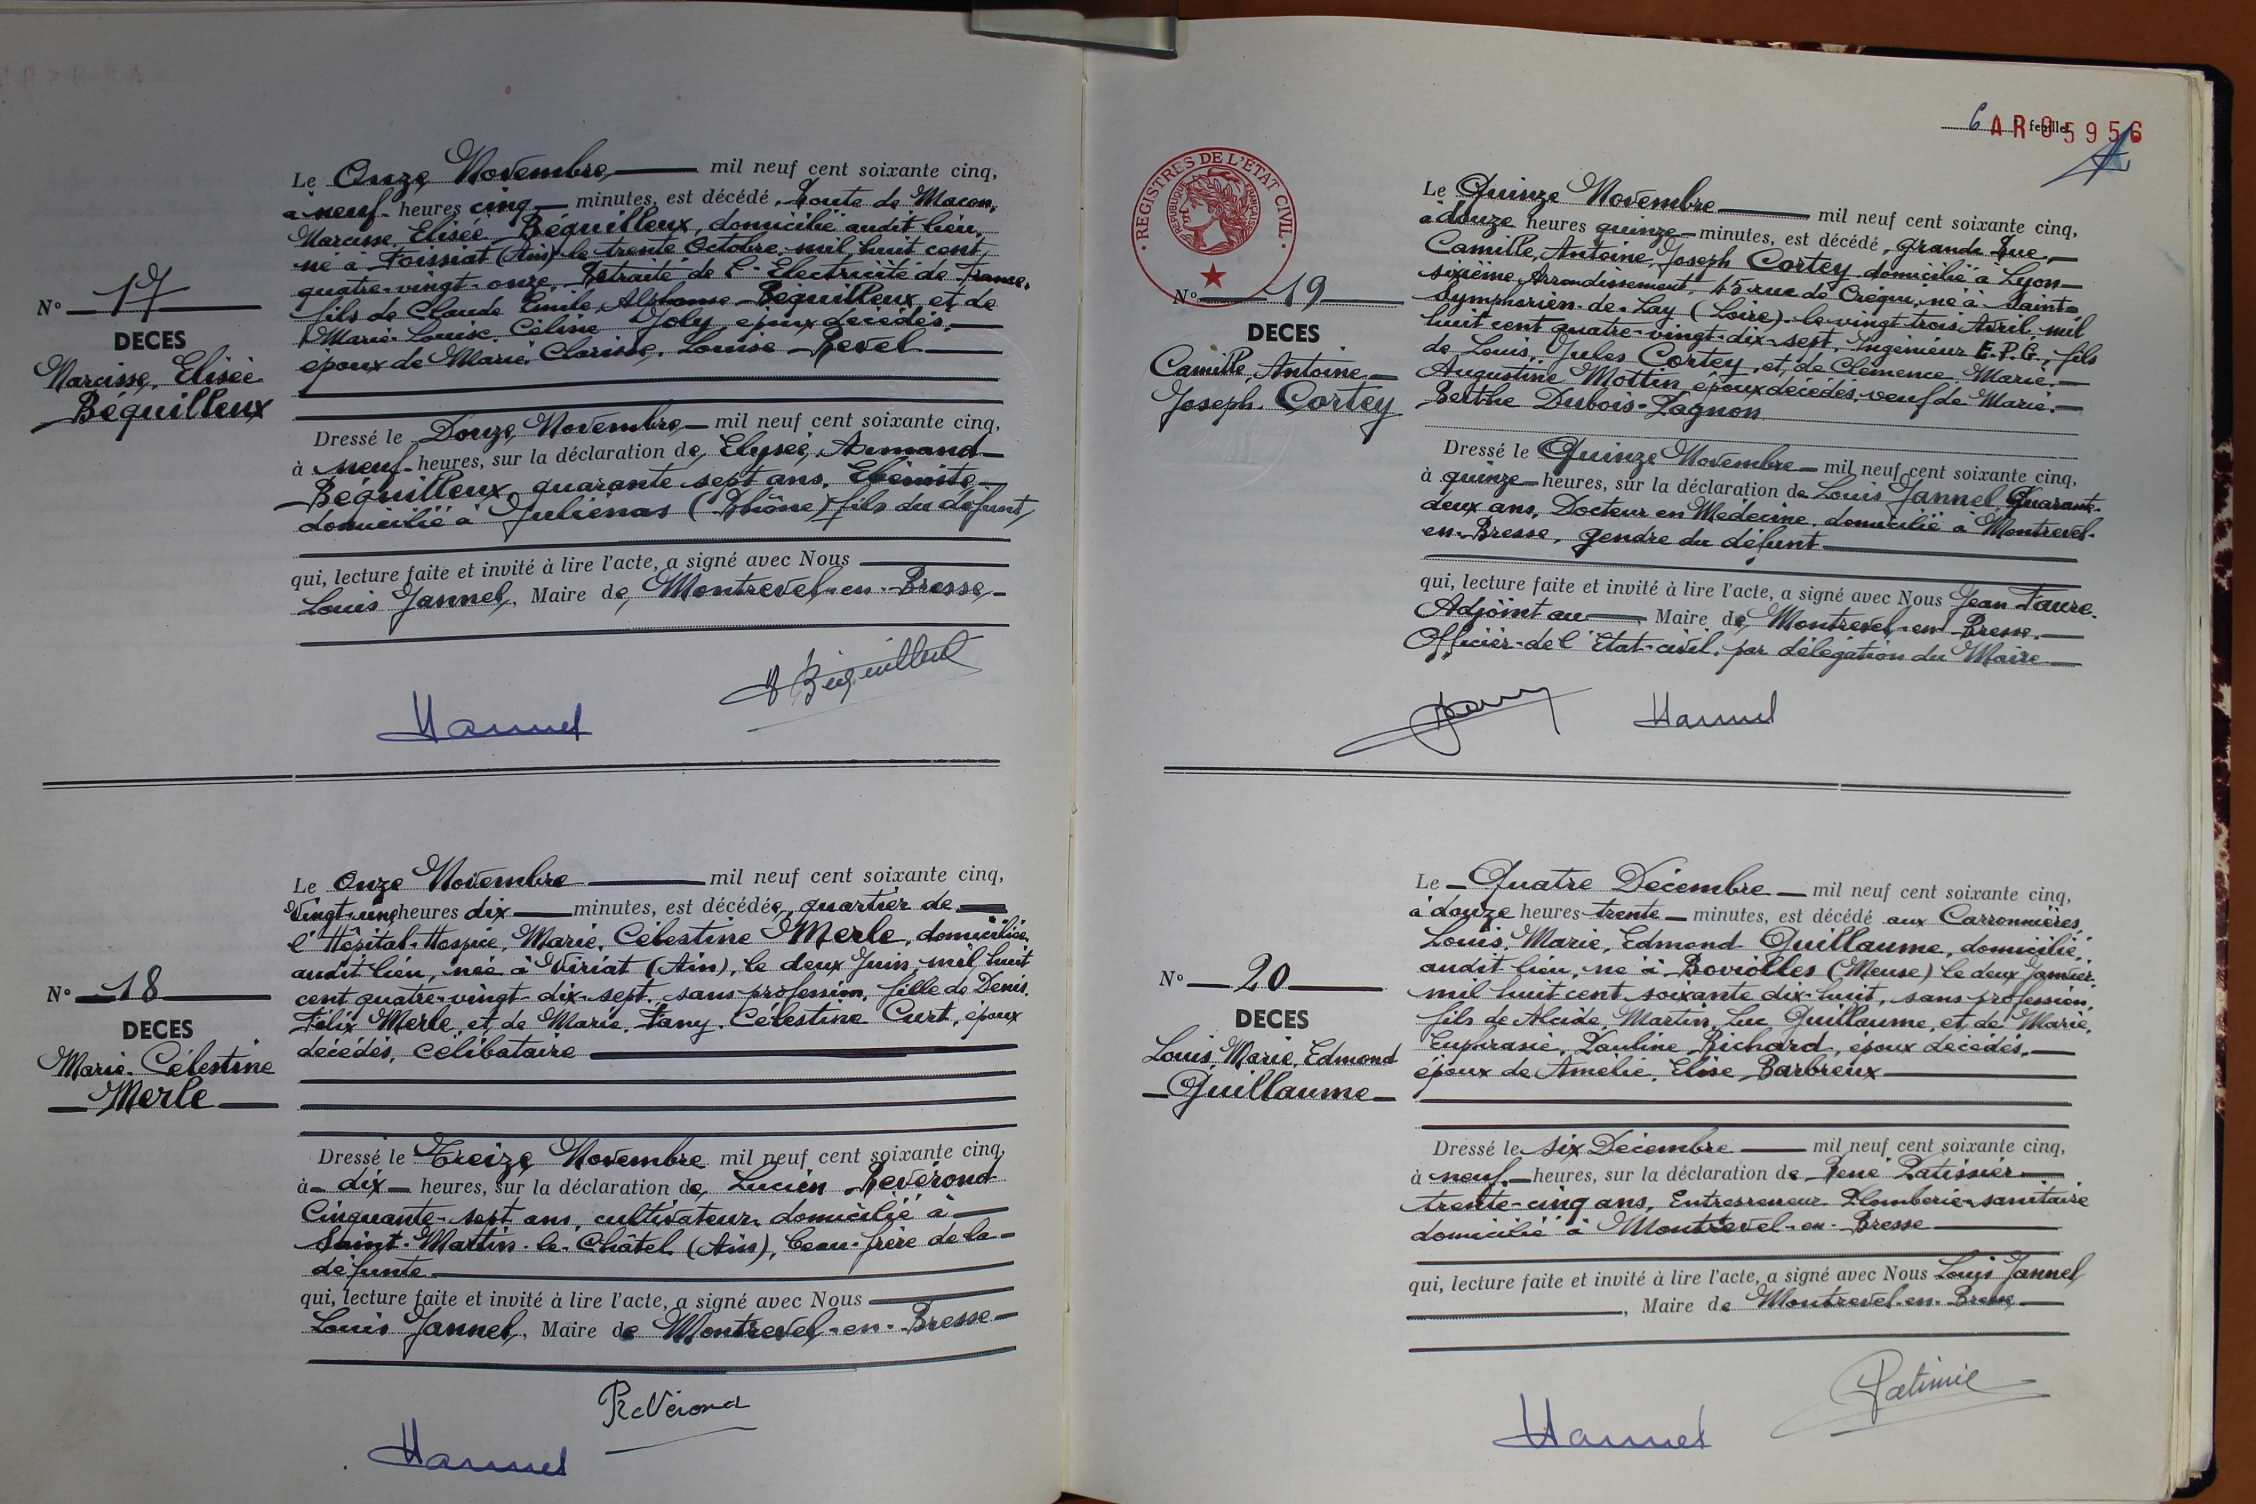 N° 17
DECES
Narcisse, Elisée
Béguilleux
Le Onze Novembre mil neuf cent soixante cinq,
à neuf heures cinq minutes, est décédé, Route de Macon,
Narcisse, Elisée Béguilleux, domicilié audit lieu,
né à Foissiat (Ain) le trente Octobre mil huit cent
quatre-vingt-onze, Retraité de l'Electricité de France,
fils de Claude, Emile, Alphonse Béguilleux et de
Marie-Louise, Céline Joly, époux décédés,
époux de Marie, Clarisse, Louise Revel
Dressé le Douze Novembre mil neuf cent soixante cinq,
à neuf heures, sur la déclaration de Elysée, Armand
Béguilleux quarante sept ans, Ebéniste
domicilié à Juliénas (Rhône) fils du défunt,
qui, lecture faite et invité à lire l'acte, a signé avec Nous
Louis Jannel, Maire de Montrevel-en-Bresse
Béguilleux
Jannel
N° 18
DECES
Marie-Célestine
Merle
Le Onze Novembre mil neuf cent soixante cinq,
Vingt-une heures dix minutes, est décédée, quartier de
l'Hôpital-Hospice, Marie, Célestine Merle, domiciliée
audit lieu, née à Viriat (Ain), le deux Juin, mil huit
cent quatre-vingt-dix-sept, sans profession, fille de Denis,
Félix Merle, et de Marie, Fany, Célestine Curt, époux
décédés, célibataire
Dressé le Treize Novembre mil neuf cent soixante cinq,
à dix heures, sur la déclaration de Lucien Revérond
Cinquante-sept ans, cultivateur, domicilié à
Saint-Martin-le-Châtel (Ain), beau-frère de la
défunte
qui, lecture faite et invité à lire l'acte, a signé avec Nous
Louis Jannel, Maire de Montrevel-en-Bresse
ReVérond
Jannel
6 feuillet
AR 05956
REGISTRES DE L'ETAT CIVIL
REPUBLIQUE FRANÇAISE
N° 19
DECES
Camille, Antoine
Joseph Cortey
Le Quinze Novembre mil neuf cent soixante cinq,
à douze heures quinze minutes, est décédé, grande Rue,
Camille, Antoine, Joseph Cortey domicilié à Lyon
sixième Arrondissement, 45 rue de Créqui, né à Saint-
Symphorien-de-Lay (Loire) le vingt trois Avril, mil
huit cent quatre-vingt-dix-sept, Ingénieur E.P.G, fils
de Louis, Jules Cortey, et de Clémence, Marie,
Augustine Mottin, époux décédés, veuf de Marie,
Berthe Dubois-Pagnon
Dressé le Quinze Novembre mil neuf cent soixante cinq,
à quinze heures, sur la déclaration de Louis Jannel, Quarante-
deux ans, Docteur en Médecine, domicilié à Montrevel-
en-Bresse, gendre du défunt
qui, lecture faite et invité à lire l'acte, a signé avec Nous Jean Faure
Adjoint au Maire de Montrevel-en-Bresse
Officier de l'Etat-civil, par délégation du Maire
Jannel
N° 20
DECES
Louis, Marie, Edmond
Guillaume
Le Quatre Décembre mil neuf cent soixante cinq,
à douze heures trente minutes, est décédé aux Carronnières,
Louis, Marie, Edmond Guillaume, domicilié
audit lieu, né à Boviolles (Meuse) le deux Janvier
mil huit cent soixante dix-huit, sans profession,
fils de Alcide, Martin, Luc Guillaume, et de Marie,
Euphrasie, Pauline Richard, époux décédés,
époux de Amélie, Elise Barbreux
Dressé le six Décembre mil neuf cent soixante cinq,
à neuf heures, sur la déclaration de René Patissier
trente-cinq ans, Entrepreneur Plomberie-sanitaire
domicilié à Montrevel-en-Bresse
qui, lecture faite et invité à lire l'acte, a signé avec Nous Louis Jannel
, Maire de Montrevel-en-Bresse
Jannel